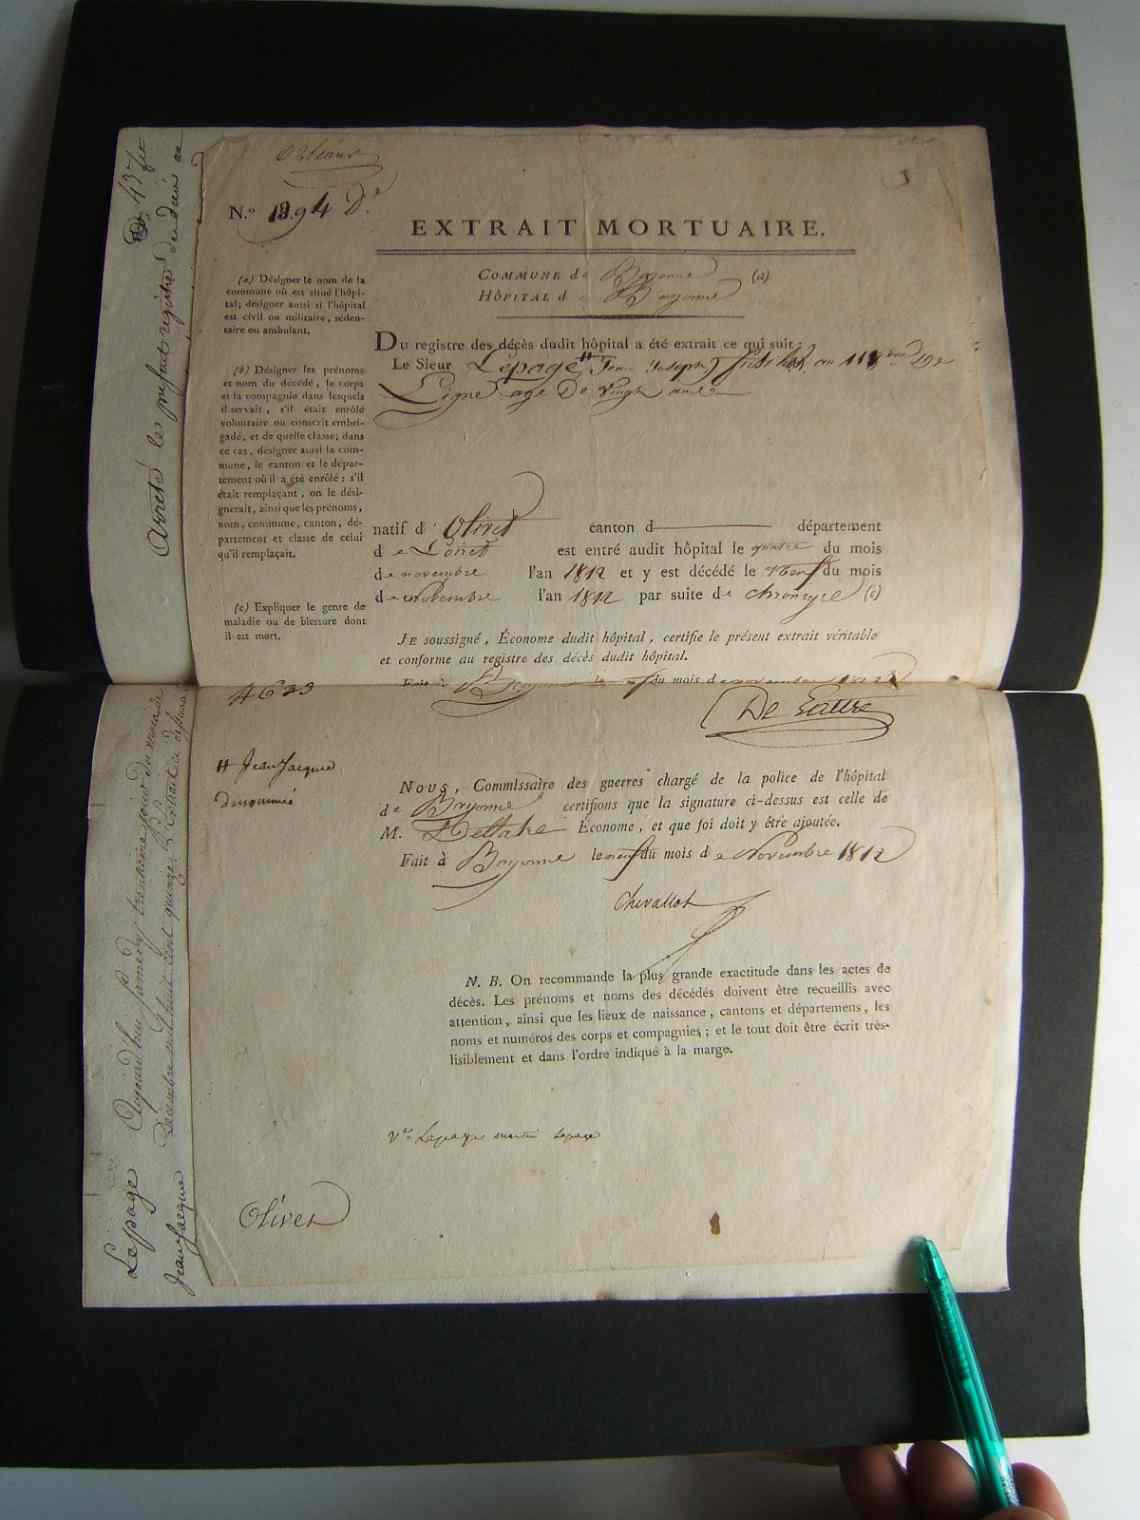 Orléans
N.º 1394 D.e
EXTRAIT MORTUAIRE.
COMMUNE de Bayonne (a)
HÔPITAL de Bayonne
(a) Désigner le nom de la
commune où est situé l'hôpi-
tal; désigner aussi si l'hôpital
est civil ou militaire, séden-
taire ou ambulant.
(b) Désigner les prénoms
et nom du décédé, le corps
et la compagnie dans lesquels
il servait, s'il était enrôlé
volontaire ou conscrit embri-
gadé, et de quelle classe; dans
ce cas, désigner aussi la com-
mune, le canton et le dépar-
tement où il a été enrôlé : s'il
était remplaçant, on le dési-
gnerait, ainsi que les prénoms,
nom, commune, canton, dé-
partement et classe de celui
qu'il remplaçait.
(c) Expliquer le genre de
maladie ou de blessure dont
il est mort.
DU registre des décès dudit hôpital a été extrait ce qui suit:
Le Sieur Lepage Jean (Joseph) fusilier au 118eme De
Ligne age De vingt ans
natif d'Olivet canton d département
de Loiret est entré audit hôpital le quatre du mois
de novembre l'an 1812 et y est décédé le neuf du mois
de novembre l'an 1812 par suite de (c)
JE soussigné, Économe dudit hôpital, certifie le présent extrait véritable
et conforme au registre des décès dudit hôpital.
Fait à Bayonne le neuf du mois de novembre 1812
De Lattre
4623
H Jean Jacques
Dénommé
NOUS, Commissaire des guerres chargé de la police de l'hôpital
de Bayonne certifions que la signature ci-dessus est celle de
M. Delattre Économe, et que foi doit y être ajoutée.
Fait à Bayonne le neuf du mois de Novembre 1812
Chevallot
N. B. On recommande la plus grande exactitude dans les actes de
décès. Les prénoms et noms des décédés doivent être recueillis avec
attention, ainsi que les lieux de naissance, cantons et départemens, les
noms et numéros des corps et compagnies; et le tout doit être écrit très-
lisiblement et dans l'ordre indiqué à la marge.
Lepage
Olivet
Arrêté les présent registre
Lepage
Jean Jacque
Aujourd'hui Samedy trente
Décembre mil huit cent quinze